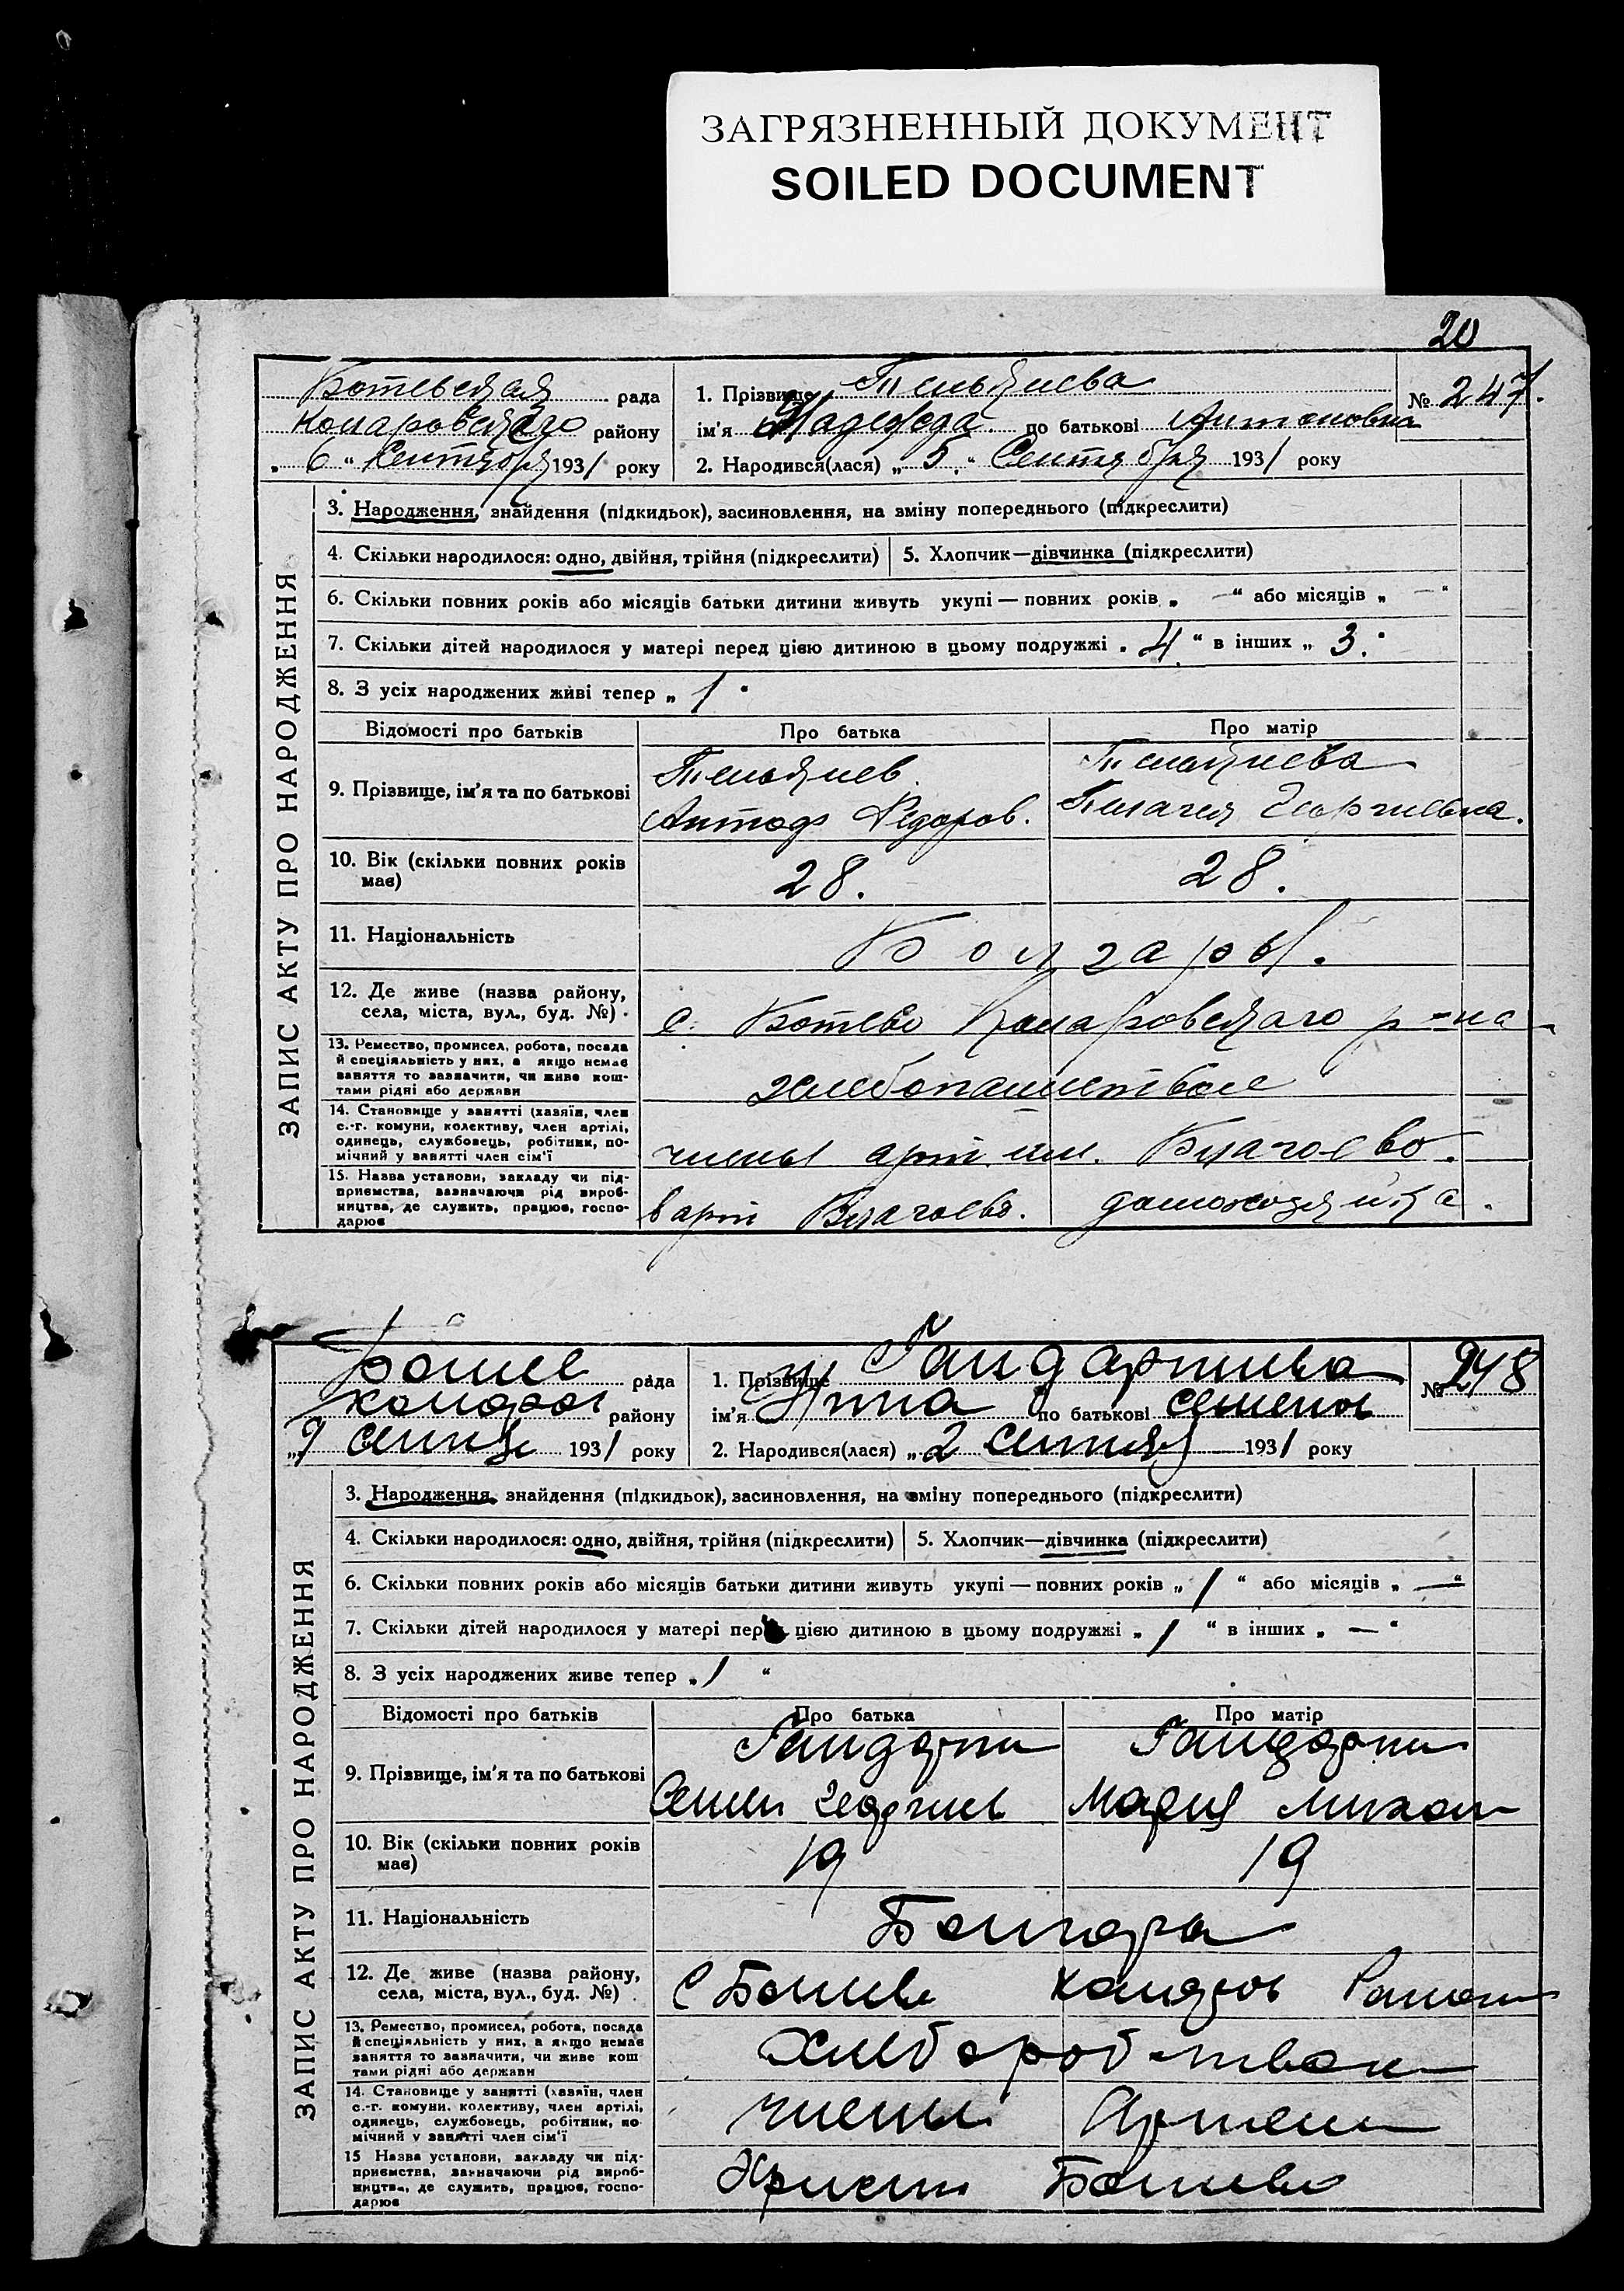 ЗАГРЯЗНЕННЫЙ ДОКУМЕНТ
SOILED DOCUMENT
20
ЗАПИС АКТУ ПРО НАРОДЖЕННЯ
Ботевская рада
Коларовскаго району
„ 6 “ Сентября 1931 року
1. Прізвище
№ 247.
ім'я Надежда по батькові Антоновна
2. Народився(лася) „ 5 “ Сентября 1931 року
3. Народження, знайдення (підкидьок), засиновлення, на зміну попереднього (підкреслити)
4. Скільки народилося: одно, двійня, трійня (підкреслити) 5. Хлопчик—дівчинка (підкреслити)
6. Скільки повних років або місяців батьки дитини живуть укупі — повних років „ — “ або місяців „ — “
7. Скільки дітей народилося у матері перед цією дитиною в цьому подружжі „ 4 “ в інших „ 3 “
8. З усіх народжених живі тепер „ 1 “
Відомості про батьків Про батька Про матір
9. Прізвище, ім'я та по батькові
Антон Федоров. Пелагея Георгиевна.
10. Вік (скільки повних років має) 28. 28.
11. Національність Болгары.
12. Де живе (назва району, села, міста, вул., буд. №) с. Ботево Коларовскаго р-на
13. Ремество, промисел, робота, посада й спеціяльність у них, а якщо немає заняття то зазначити, чи живе коштами рідні або держави хлебопашеством
14. Становище у занятті (хазяїн, член с.-г. комуни, колективу, член артілі, одинець, службовець, робітник, помічний у занятті член сім'ї члены арт. им. Благоево.
15. Назва установи, закладу чи підприємства, зазначаючи рід виробництва, де служить, працює, господарює в арт Благоево. домохозяйка.
ЗАПИС АКТУ ПРО НАРОДЖЕННЯ
рада
району
„ 9 Сентяб 1931 року
1. Прізвище
№ 248
ім'я по батькові Семенов
2. Народився(лася) „ 2 Сентяб 1931 року
3. Народження, знайдення (підкидьок), засиновлення, на зміну попереднього (підкреслити)
4. Скільки народилося: одно, двійня, трійня (підкреслити) 5. Хлопчик—дівчинка (підкреслити)
6. Скільки повних років або місяців батьки дитини живуть укупі — повних років „ 1 “ або місяців „ — “
7. Скільки дітей народилося у матері перед цією дитиною в цьому подружжі „ 1 “ в інших „ — “
8. З усіх народжених живе тепер „ 1 “
Відомості про батьків Про батька Про матір
9. Прізвище, ім'я та по батькові
Семен Георгиев Мария Михаил
10. Вік (скільки повних років має) 19 19
11. Національність Болгары
12. Де живе (назва району, села, міста, вул., буд. №) С
13. Ремество, промисел, робота, посада й спеціяльність у них, а якщо немає заняття то зазначити, чи живе коштами рідні або держави
14. Становище у занятті (хазяїн, член с.-г. комуни, колективу, член артілі, одинець, службовець, робітник, помічний у занятті член сім'ї члены Артели
15 Назва установи, закладу чи підприємства, зазначаючи рід виробництва, де служить, працює, господарює